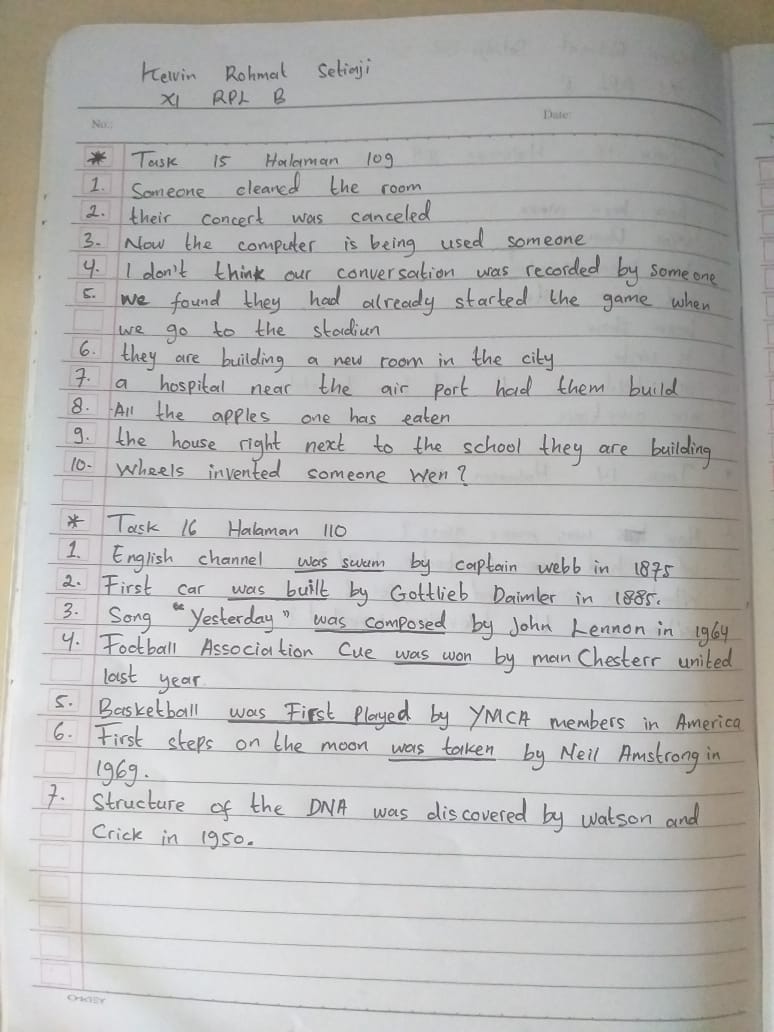 Kelvin Rohmat Setiaji
XI RPL B
No.:
Date:
* Task 15 Halaman 109
1. Someone cleaned the room
2. their concert was canceled
3. Now the computer is being used someone
4. I don't think our conversation was recorded by someone
5. we found they had already started the game when
we go to the stadiun
6. they are building a new room in the city
7. a hospital near the air port had them build
8. All the apples one has eaten
9. the house right next to the school they are building
10. Wheels invented someone wen?
* Task 16 Halaman 110
1. English channel was swam by captain webb in 1875
2. First car was built by Gottlieb Daimler in 1885.
3. Song "Yesterday" was composed by John Lennon in 1964
4. Football Association Cue was won by man Chesterr united
last year
5. Basketball was First Played by YMCA members in America
6. First steps on the moon was taken by Neil Amstrong in
1969.
7. Structure of the DNA was discovered by watson and
Crick in 1950.